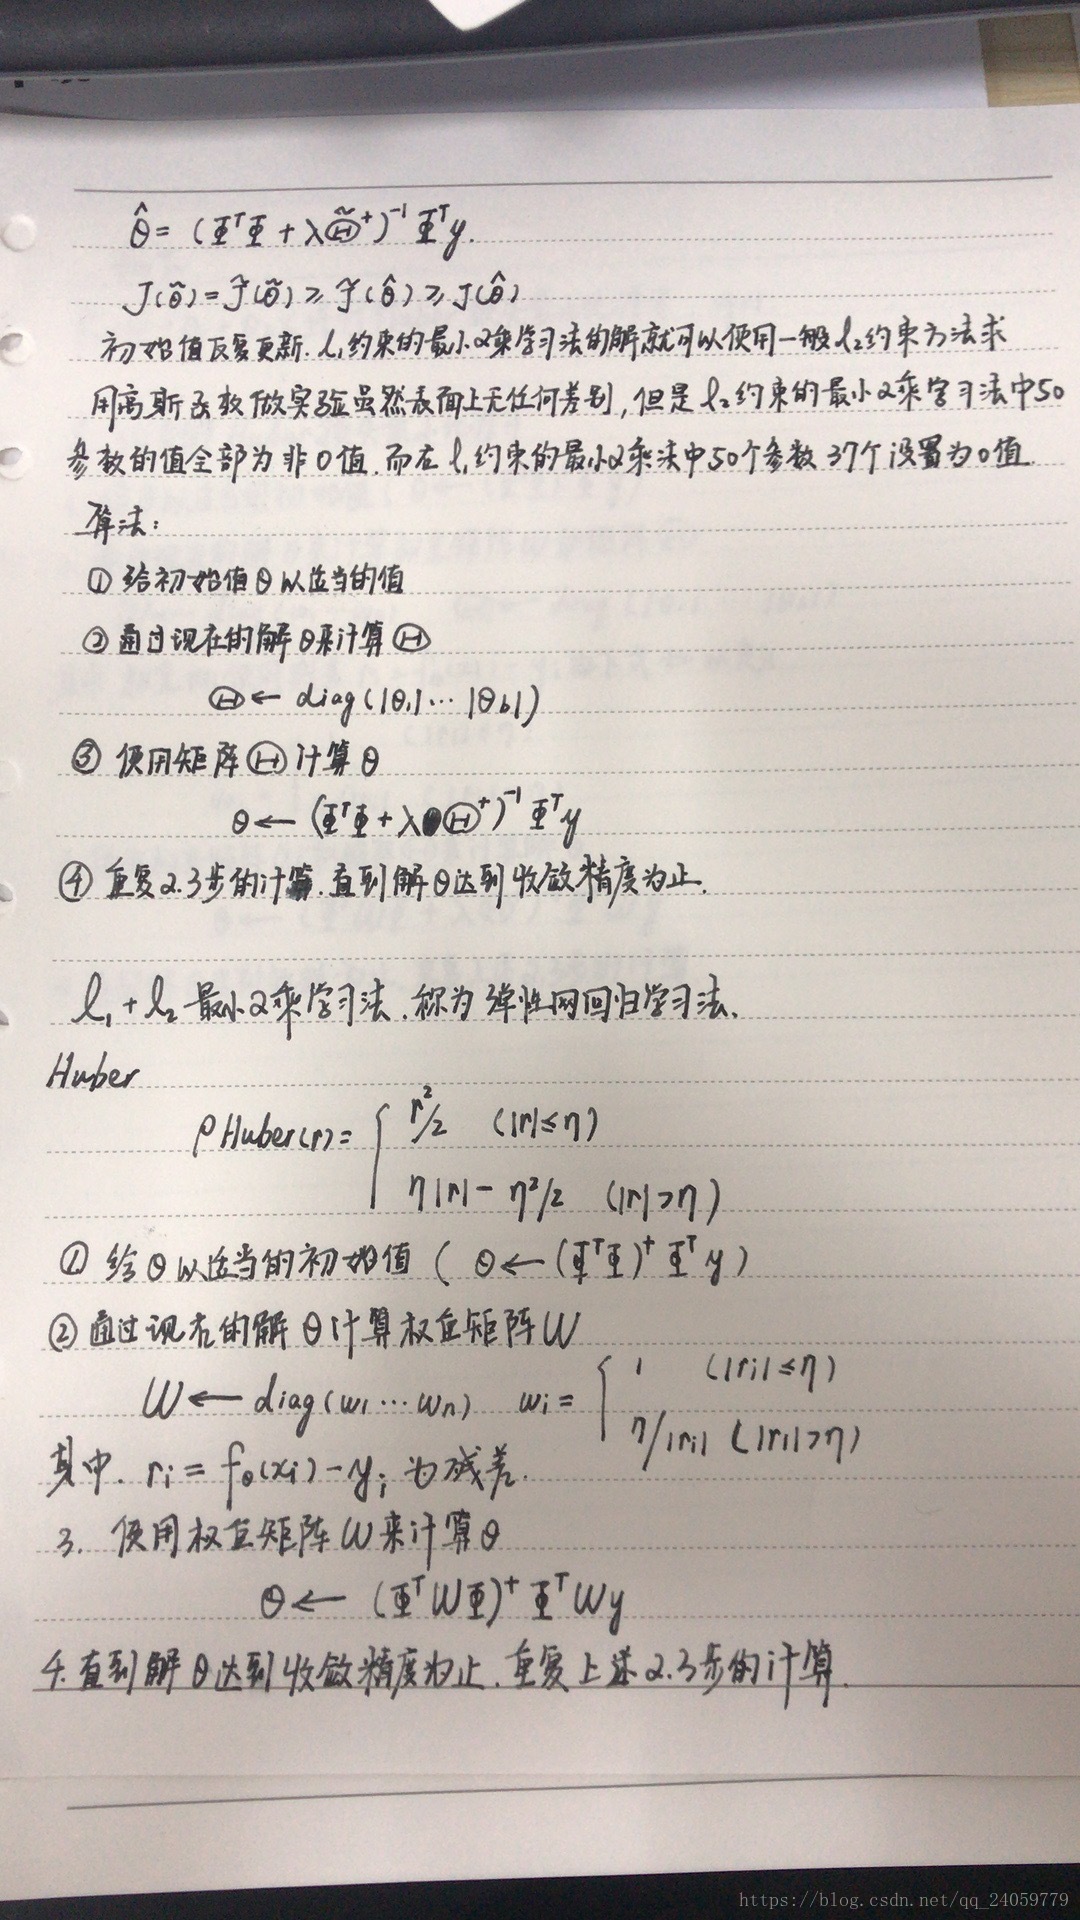 θ̂ = (Φᵀ Φ + λ Θ̃⁺)⁻¹ Φᵀ y.
J(θ̃) = J̃(θ̃) ≥ J̃(θ̂) ≥ J(θ̂)
初始值反复更新. l₁约束的最小2乘学习法的解就可以使用一般l₂约束方法求
用高斯函数做实验虽然表面上无任何差别,但是l₂约束的最小2乘学习法中50
参数的值全部为非0值.而在l₁约束的最小2乘法中50个参数37个设置为0值.
算法:
① 给初始值θ以适当的值
② 通过现在的解θ来计算Θ
Θ ← diag(|θ₁|… |θb|)
③ 使用矩阵Θ计算θ
θ ← (ΦᵀΦ + λΘ⁺)⁻¹ Φᵀy
④ 重复2.3步的计算.直到解θ达到收敛精度为止.
l₁+l₂ 最小2乘学习法.称为弹性网回归学习法.
Huber
ρHuber(r)= { r²/2 (|r|≤η)
η|r| - η²/2 (|r|>η)
① 给θ以适当的初始值 ( θ ← (ΦᵀΦ)⁺ Φᵀy )
② 通过现在的解θ计算权重矩阵W
W ← diag(w₁…wn) wi = { 1 (|ri|≤η)
η/|ri| (|ri|>η)
其中. ri = fθ(xi) - yi 为残差.
3. 使用权重矩阵W来计算θ
θ ← (ΦᵀWΦ)⁺ ΦᵀWy
4.直到解θ达到收敛精度为止.重复上述2.3步的计算.
https://blog.csdn.net/qq_24059779